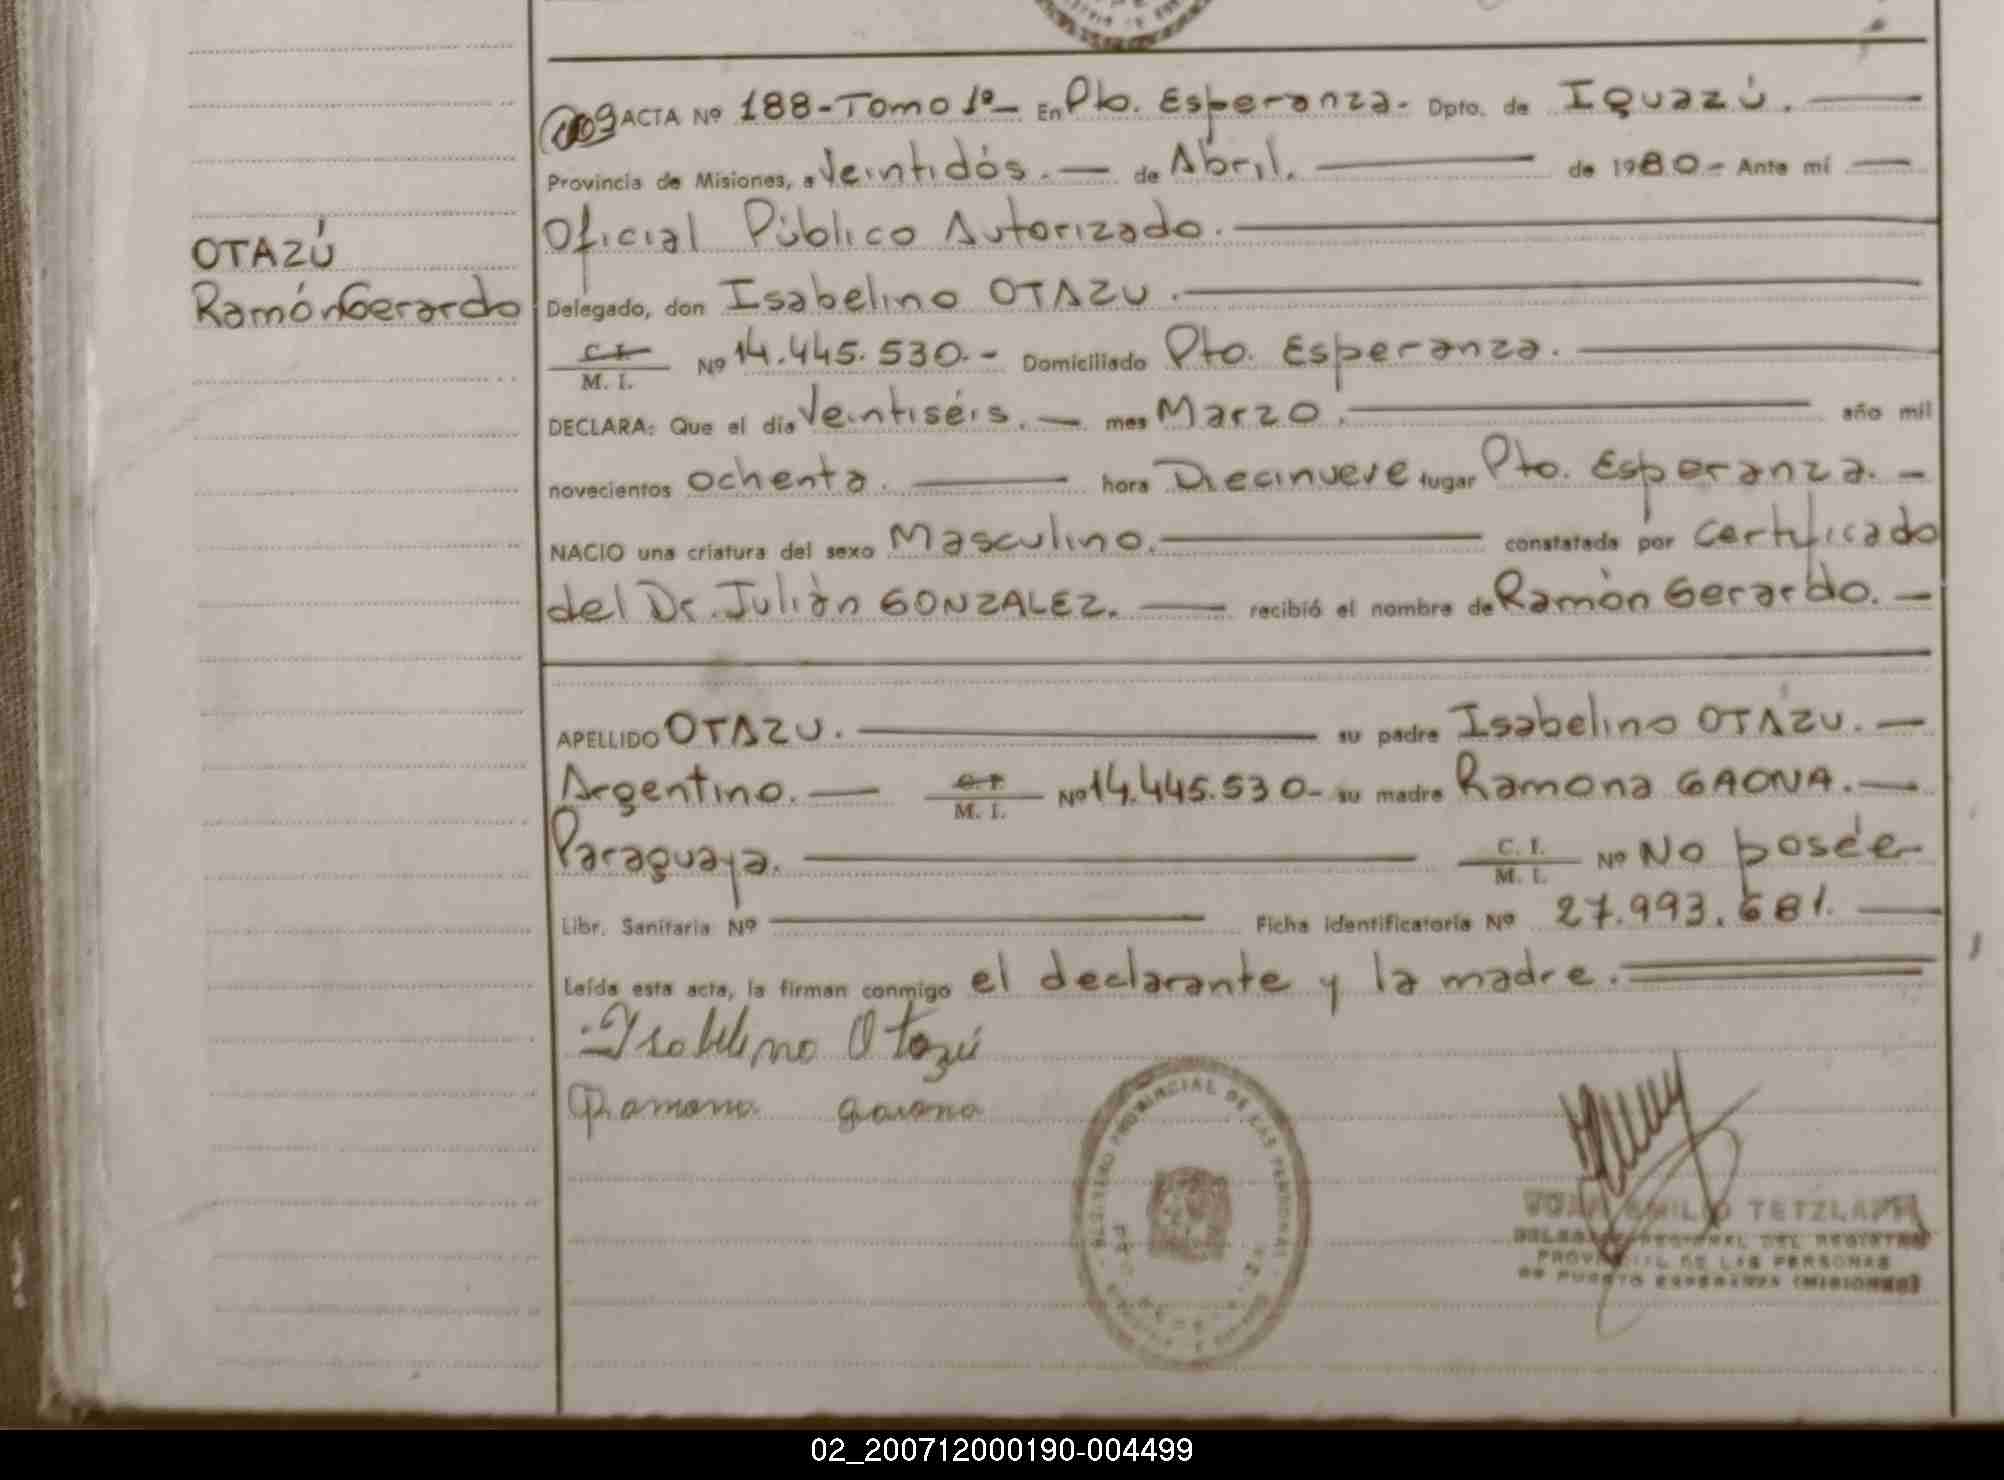 OTAZÚ
Ramón Gerardo
009 ACTA Nº 188-Tomo 1º En Pto. Esperanza. Dpto. de Iguazú.
Provincia de Misiones, a Veintidós. de Abril. de 1980 Ante mí
Oficial Público Autorizado.
Delegado, don Isabelino OTAZU.
C. I.
M. I. Nº 14.445.530.- Domiciliado Pto. Esperanza.
DECLARA: Que el día Veintiséis. mes Marzo. año mil
novecientos ochenta. hora Diecinueve lugar Pto. Esperanza.
NACIO una criatura del sexo Masculino. constatada por Certificado
del Dr. Julián GONZALEZ. recibió el nombre de Ramón Gerardo.
APELLIDO OTAZU. su padre Isabelino OTAZU.
Argentino. C. I. M. I. Nº 14.445.530- su madre Ramona GAONA.
Paraguaya. C. I. M. I. Nº No posée
Libr. Sanitaria Nº Ficha identificatoria Nº 27.993.681.
Leída esta acta, la firman conmigo el declarante y la madre.
Isabelino Otazú
Ramona gaona
REGISTRO PROVINCIAL DE LAS PERSONAS
JUAN EMILIO TETZLAFF
DELEGADO REGIONAL DEL REGISTRO
PROVINCIAL DE LAS PERSONAS
DE PUERTO ESPERANZA (MISIONES)
02_200712000190-004499